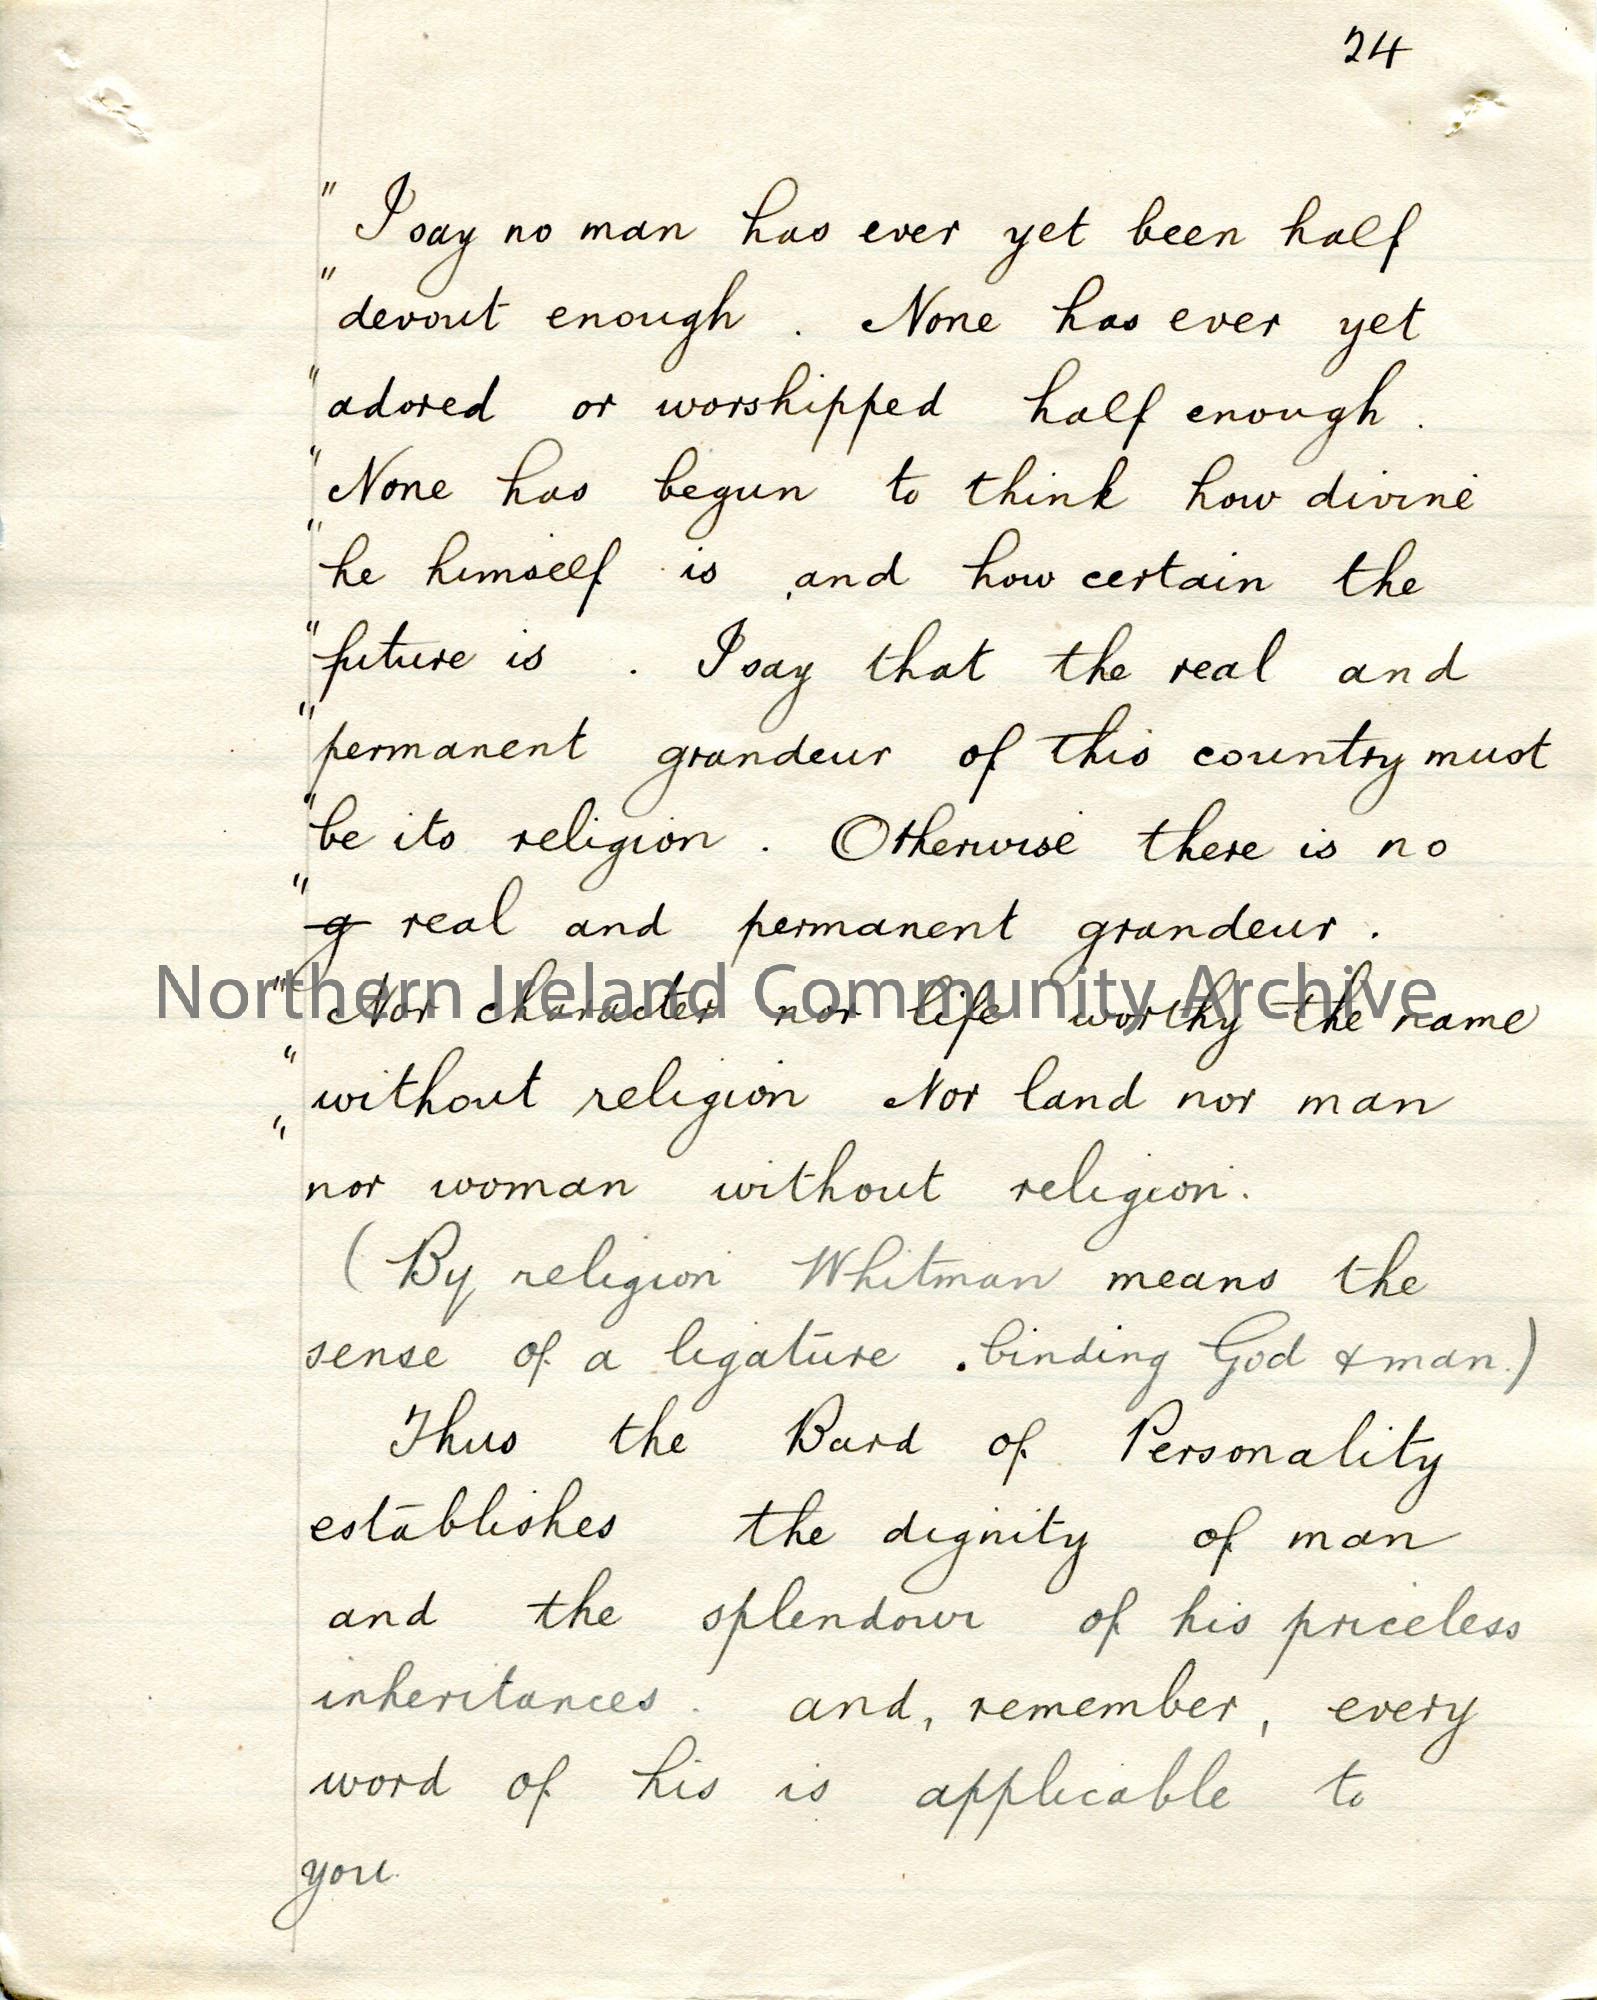 24
" I say no man has ever yet been half
" devout enough . None has ever yet
" adored or worshipped half enough .
" None has begun to think how divine
" he himself is , and how certain the
" future is . I say that the real and
" permanent grandeur of this country must
" be its religion . Otherwise there is no
" g real and permanent grandeur .
" Nor character nor life worthy the name
" without religion Nor land nor man
" nor woman without religion.
( By religion Whitman means the
sense of a ligature . binding God & man. )
Thus the Bard of Personality
establishes the dignity of man
and the splendour of his priceless
inheritances . and, remember, every
word of his is applicable to
you.
Northern Ireland Community Archive